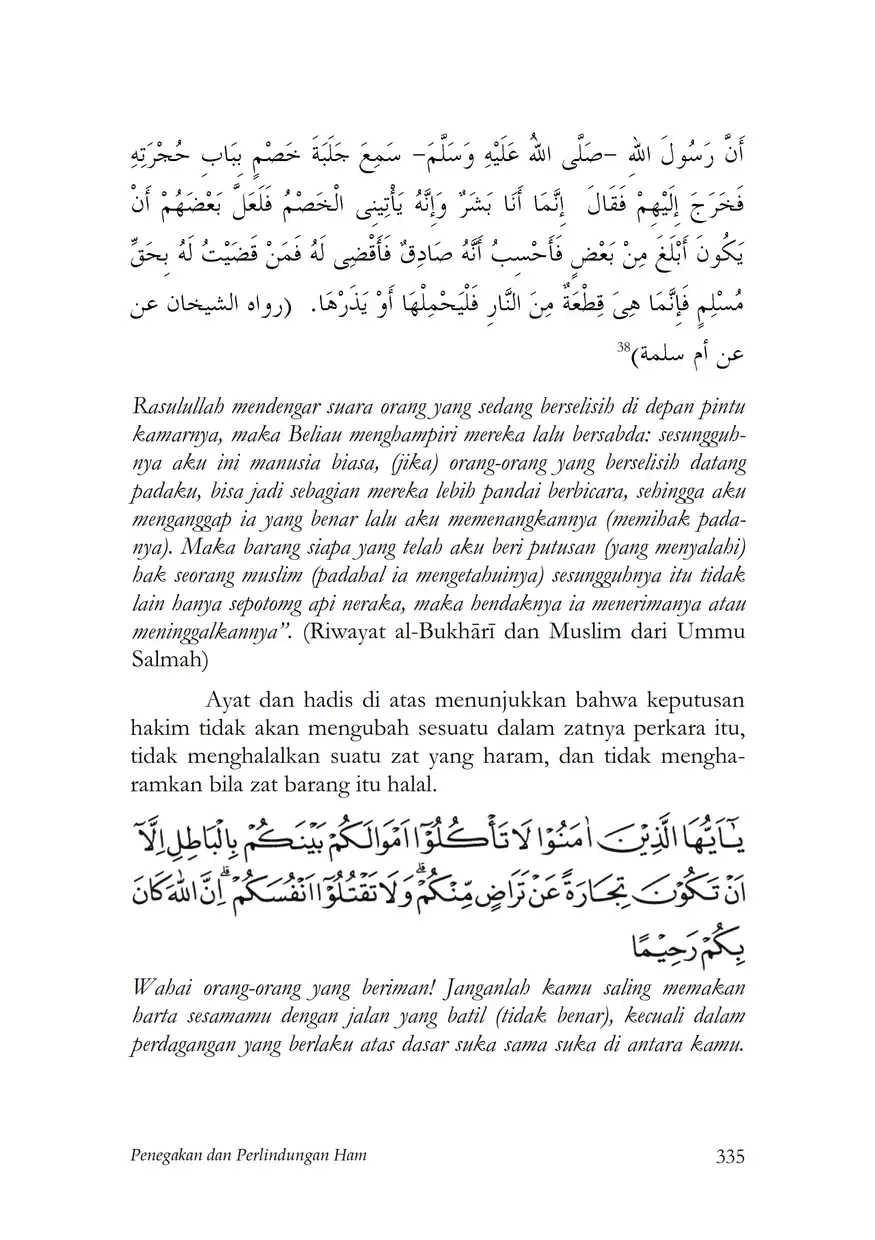 أَنَّ رَسُولَ اللهِ –صَلَّى اللهُ عَلَيْهِ وَسَلَّمَ– سَمِعَ جَلَبَةَ خَصْمٍ بِبَابِ حُجْرَتِهِ
فَخَرَجَ إِلَيْهِمْ فَقَالَ إِنَّمَا أَنَا بَشَرٌ وَإِنَّهُ يَأْتِينِى الْخَصْمُ فَلَعَلَّ بَعْضَهُمْ أَنْ
يَكُونَ أَبْلَغَ مِنْ بَعْضٍ فَأَحْسِبُ أَنَّهُ صَادِقٌ فَأَقْضِى لَهُ فَمَنْ قَضَيْتُ لَهُ بِحَقِّ
مُسْلِمٍ فَإِنَّمَا هِىَ قِطْعَةٌ مِنَ النَّارِ فَلْيَحْمِلْهَا أَوْ يَذَرْهَا. (رواه الشيخان عن
عن أم سلمة)38
Rasulullah mendengar suara orang yang sedang berselisih di depan pintu
kamarnya, maka Beliau menghampiri mereka lalu bersabda: sesungguh-
nya aku ini manusia biasa, (jika) orang-orang yang berselisih datang
padaku, bisa jadi sebagian mereka lebih pandai berbicara, sehingga aku
menganggap ia yang benar lalu aku memenangkannya (memihak pada-
nya). Maka barang siapa yang telah aku beri putusan (yang menyalahi)
hak seorang muslim (padahal ia mengetahuinya) sesungguhnya itu tidak
lain hanya sepotomg api neraka, maka hendaknya ia menerimanya atau
meninggalkannya”. (Riwayat al-Bukhārī dan Muslim dari Ummu
Salmah)
Ayat dan hadis di atas menunjukkan bahwa keputusan
hakim tidak akan mengubah sesuatu dalam zatnya perkara itu,
tidak menghalalkan suatu zat yang haram, dan tidak mengha-
ramkan bila zat barang itu halal.
يٰٓاَيُّهَا الَّذِيْنَ اٰمَنُوْا لَا تَأْكُلُوْٓا اَمْوَالَكُمْ بَيْنَكُمْ بِالْبَاطِلِ اِلَّآ
اَنْ تَكُوْنَ تِجَارَةً عَنْ تَرَاضٍ مِّنْكُمْ ۗ وَلَا تَقْتُلُوْٓا اَنْفُسَكُمْ ۗ اِنَّ اللّٰهَ كَانَ
بِكُمْ رَحِيْمًا
Wahai orang-orang yang beriman! Janganlah kamu saling memakan
harta sesamamu dengan jalan yang batil (tidak benar), kecuali dalam
perdagangan yang berlaku atas dasar suka sama suka di antara kamu.
Penegakan dan Perlindungan Ham 335